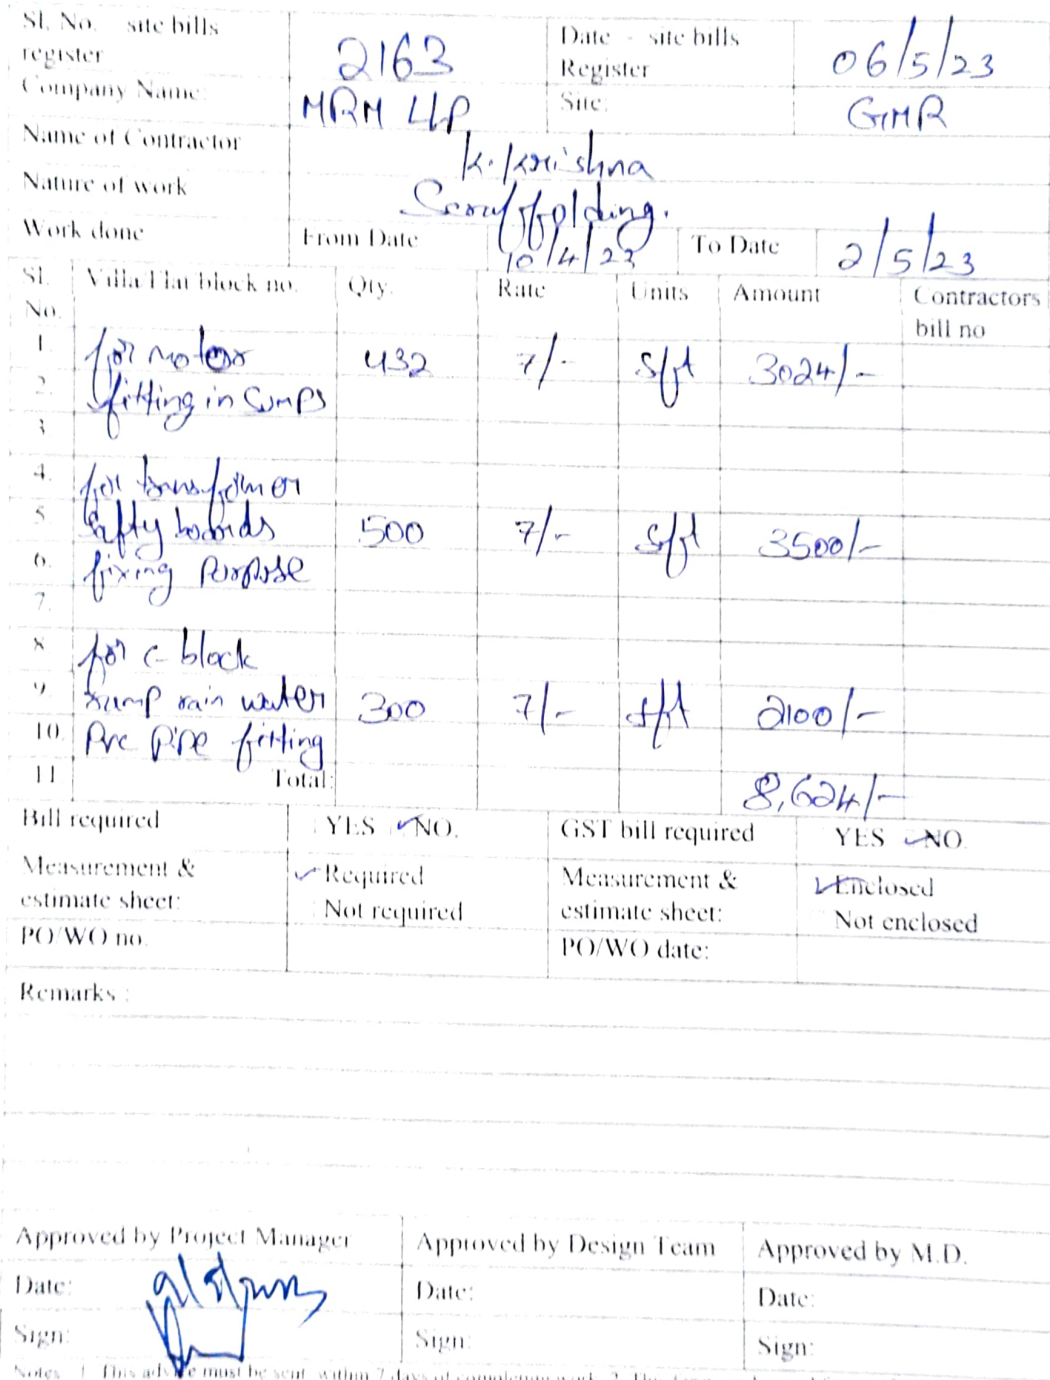 Sl. No. site bills register 2163 Date - site bills Register 06/5/23
Company Name: MRM LLP Site: GMR
Name of Contractor K. Krishna
Nature of work Scruffolding.
Work done From Date 10/4/23 To Date 2/5/23
Sl. No. Villa/Flat block no. Qty. Rate Units Amount Contractors bill no
1 for motor 432 7/- sft 3024/-
2. fitting in sumps
3
4. for transformer
5 safty boards 500 7/- sft 3500/-
6. fixing purpose
7.
8 for c- block
9 ramp rain water 300 7/- sft 2100/-
10. Pvc pipe fitting
11 Total: 8,624/-
Bill required YES ✓NO. GST bill required YES ✓NO.
Measurement & estimate sheet: ✓Required Not required Measurement & estimate sheet: ✓Enclosed Not enclosed
PO/WO no. PO/WO date:
Remarks :
Approved by Project Manager Approved by Design Team Approved by M.D.
Date: Date: Date:
Sign: Sign: Sign:
Notes 1. This advice must be sent within 7 days of completion work. 2. This